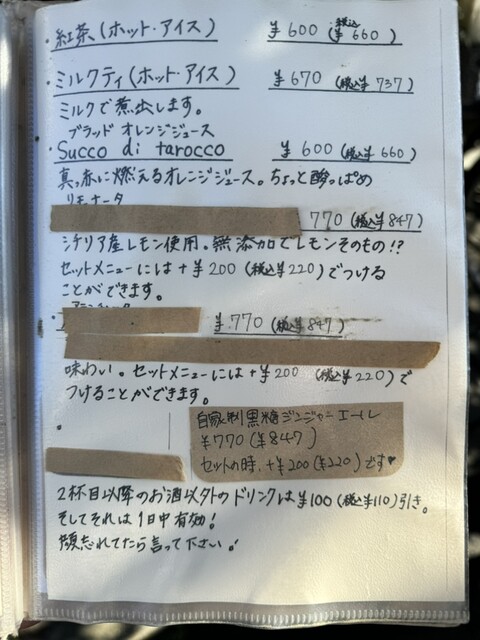 ・紅茶(ホット・アイス) ¥600 (税込¥660)
・ミルクティ(ホット・アイス) ¥670 (税込¥737)
ミルクで煮出します。
ブラッドオレンジジュース
・Succo di tarocco ¥600 (税込¥660)
真っ赤に燃えるオレンジジュース。ちょっと酸っぱめ
リモナータ
770 (税込¥847)
シチリア産レモン使用。無添加でレモンそのもの!?
セットメニューには+¥200 (税込¥220)でつける
ことができます。
¥770 (税込¥847)
味わい。セットメニューには+¥200 (税込¥220)で
つけることができます。
自家製黒糖ジンジャーエール
¥770(¥847)
セットの時、+¥200(¥220)です♥
2杯目以降のお酒以外のドリンクは¥100(税込¥110)引き。
そしてそれは1日中有効!
顔忘れてたら言って下さい!